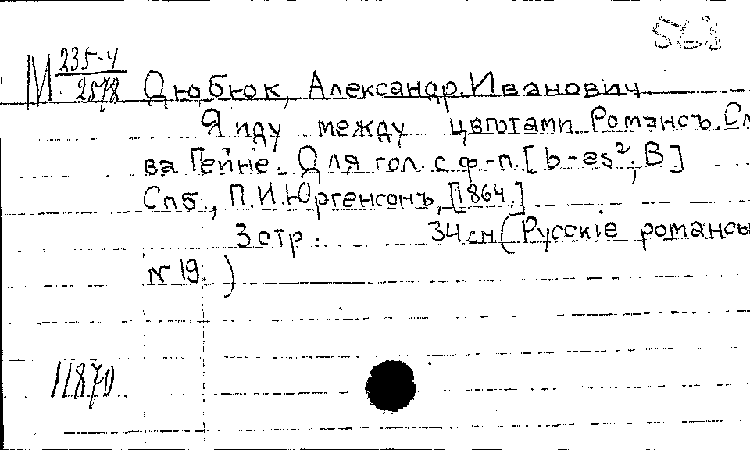 563
М 235-4
2578
Дюбюк, Александр Иванович
Я иду между цвѣтами. Романсъ. Сл
ва Гейне. Для гол. с ф-п. [b-es², B]
Спб., П.И.Юргенсонъ, [1864.]
3 стр. 34 см (Русскiе романсы
№ 19.)
11870